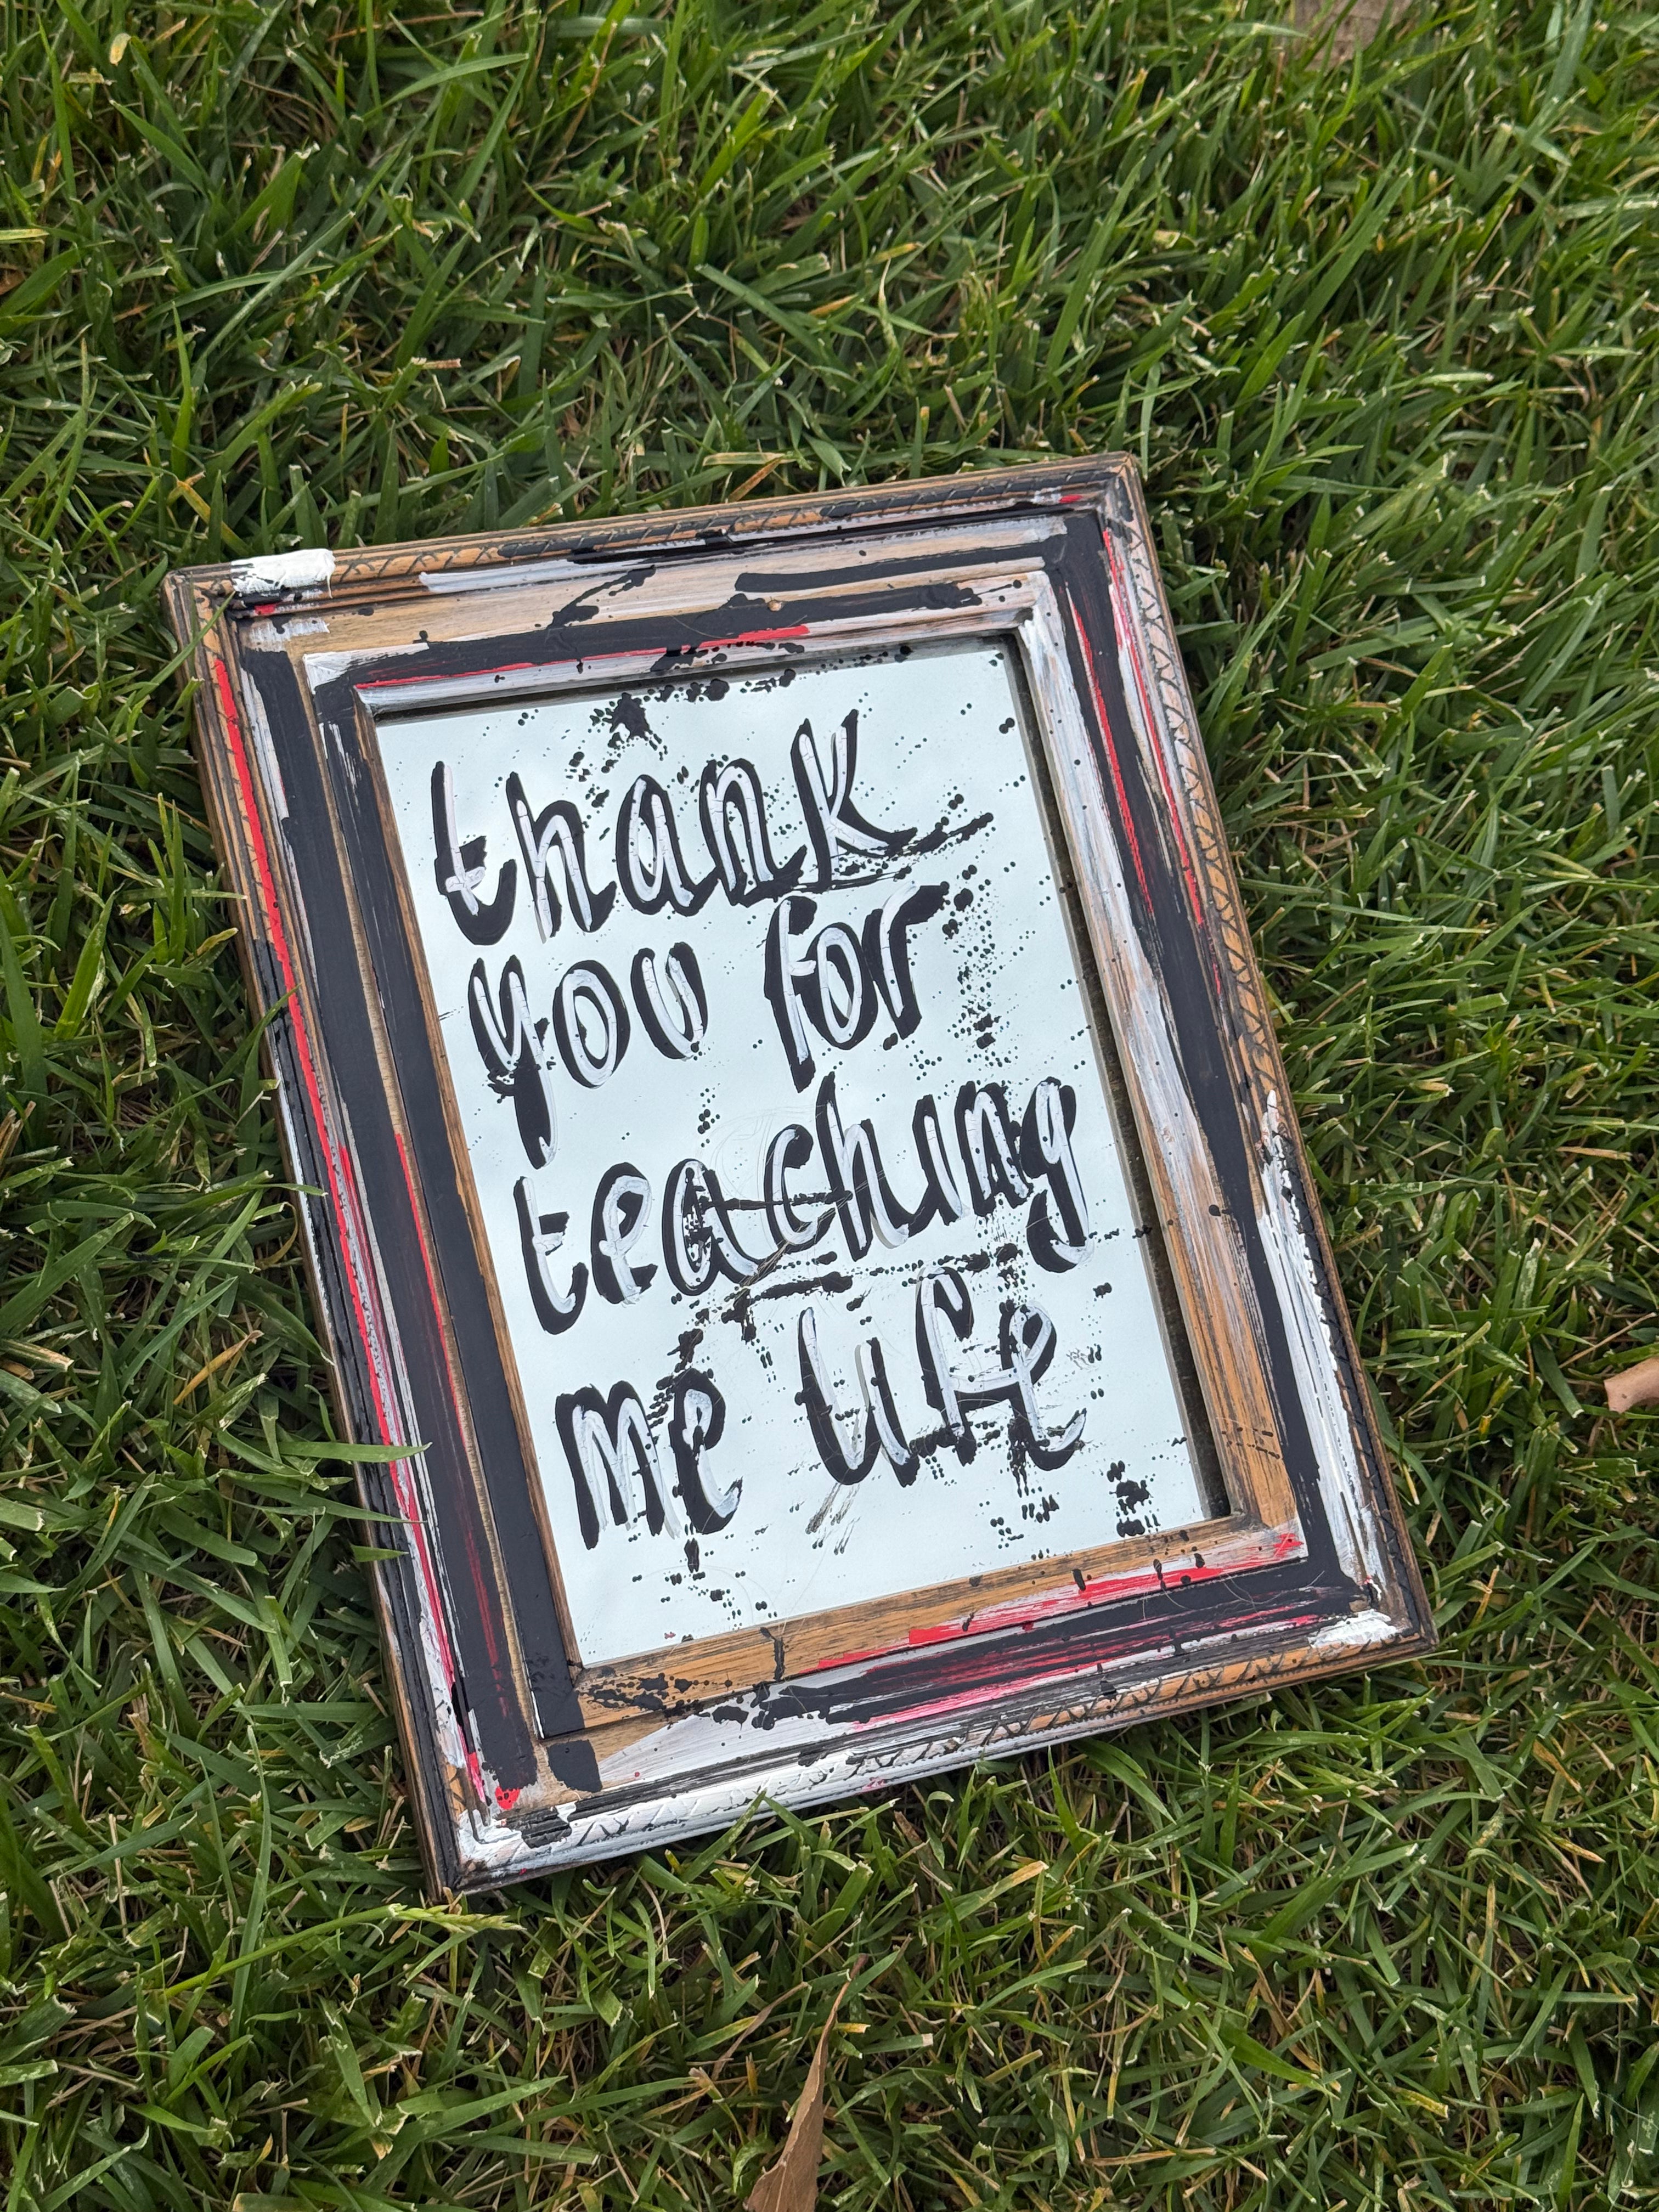 thank
you for
teaching
me life